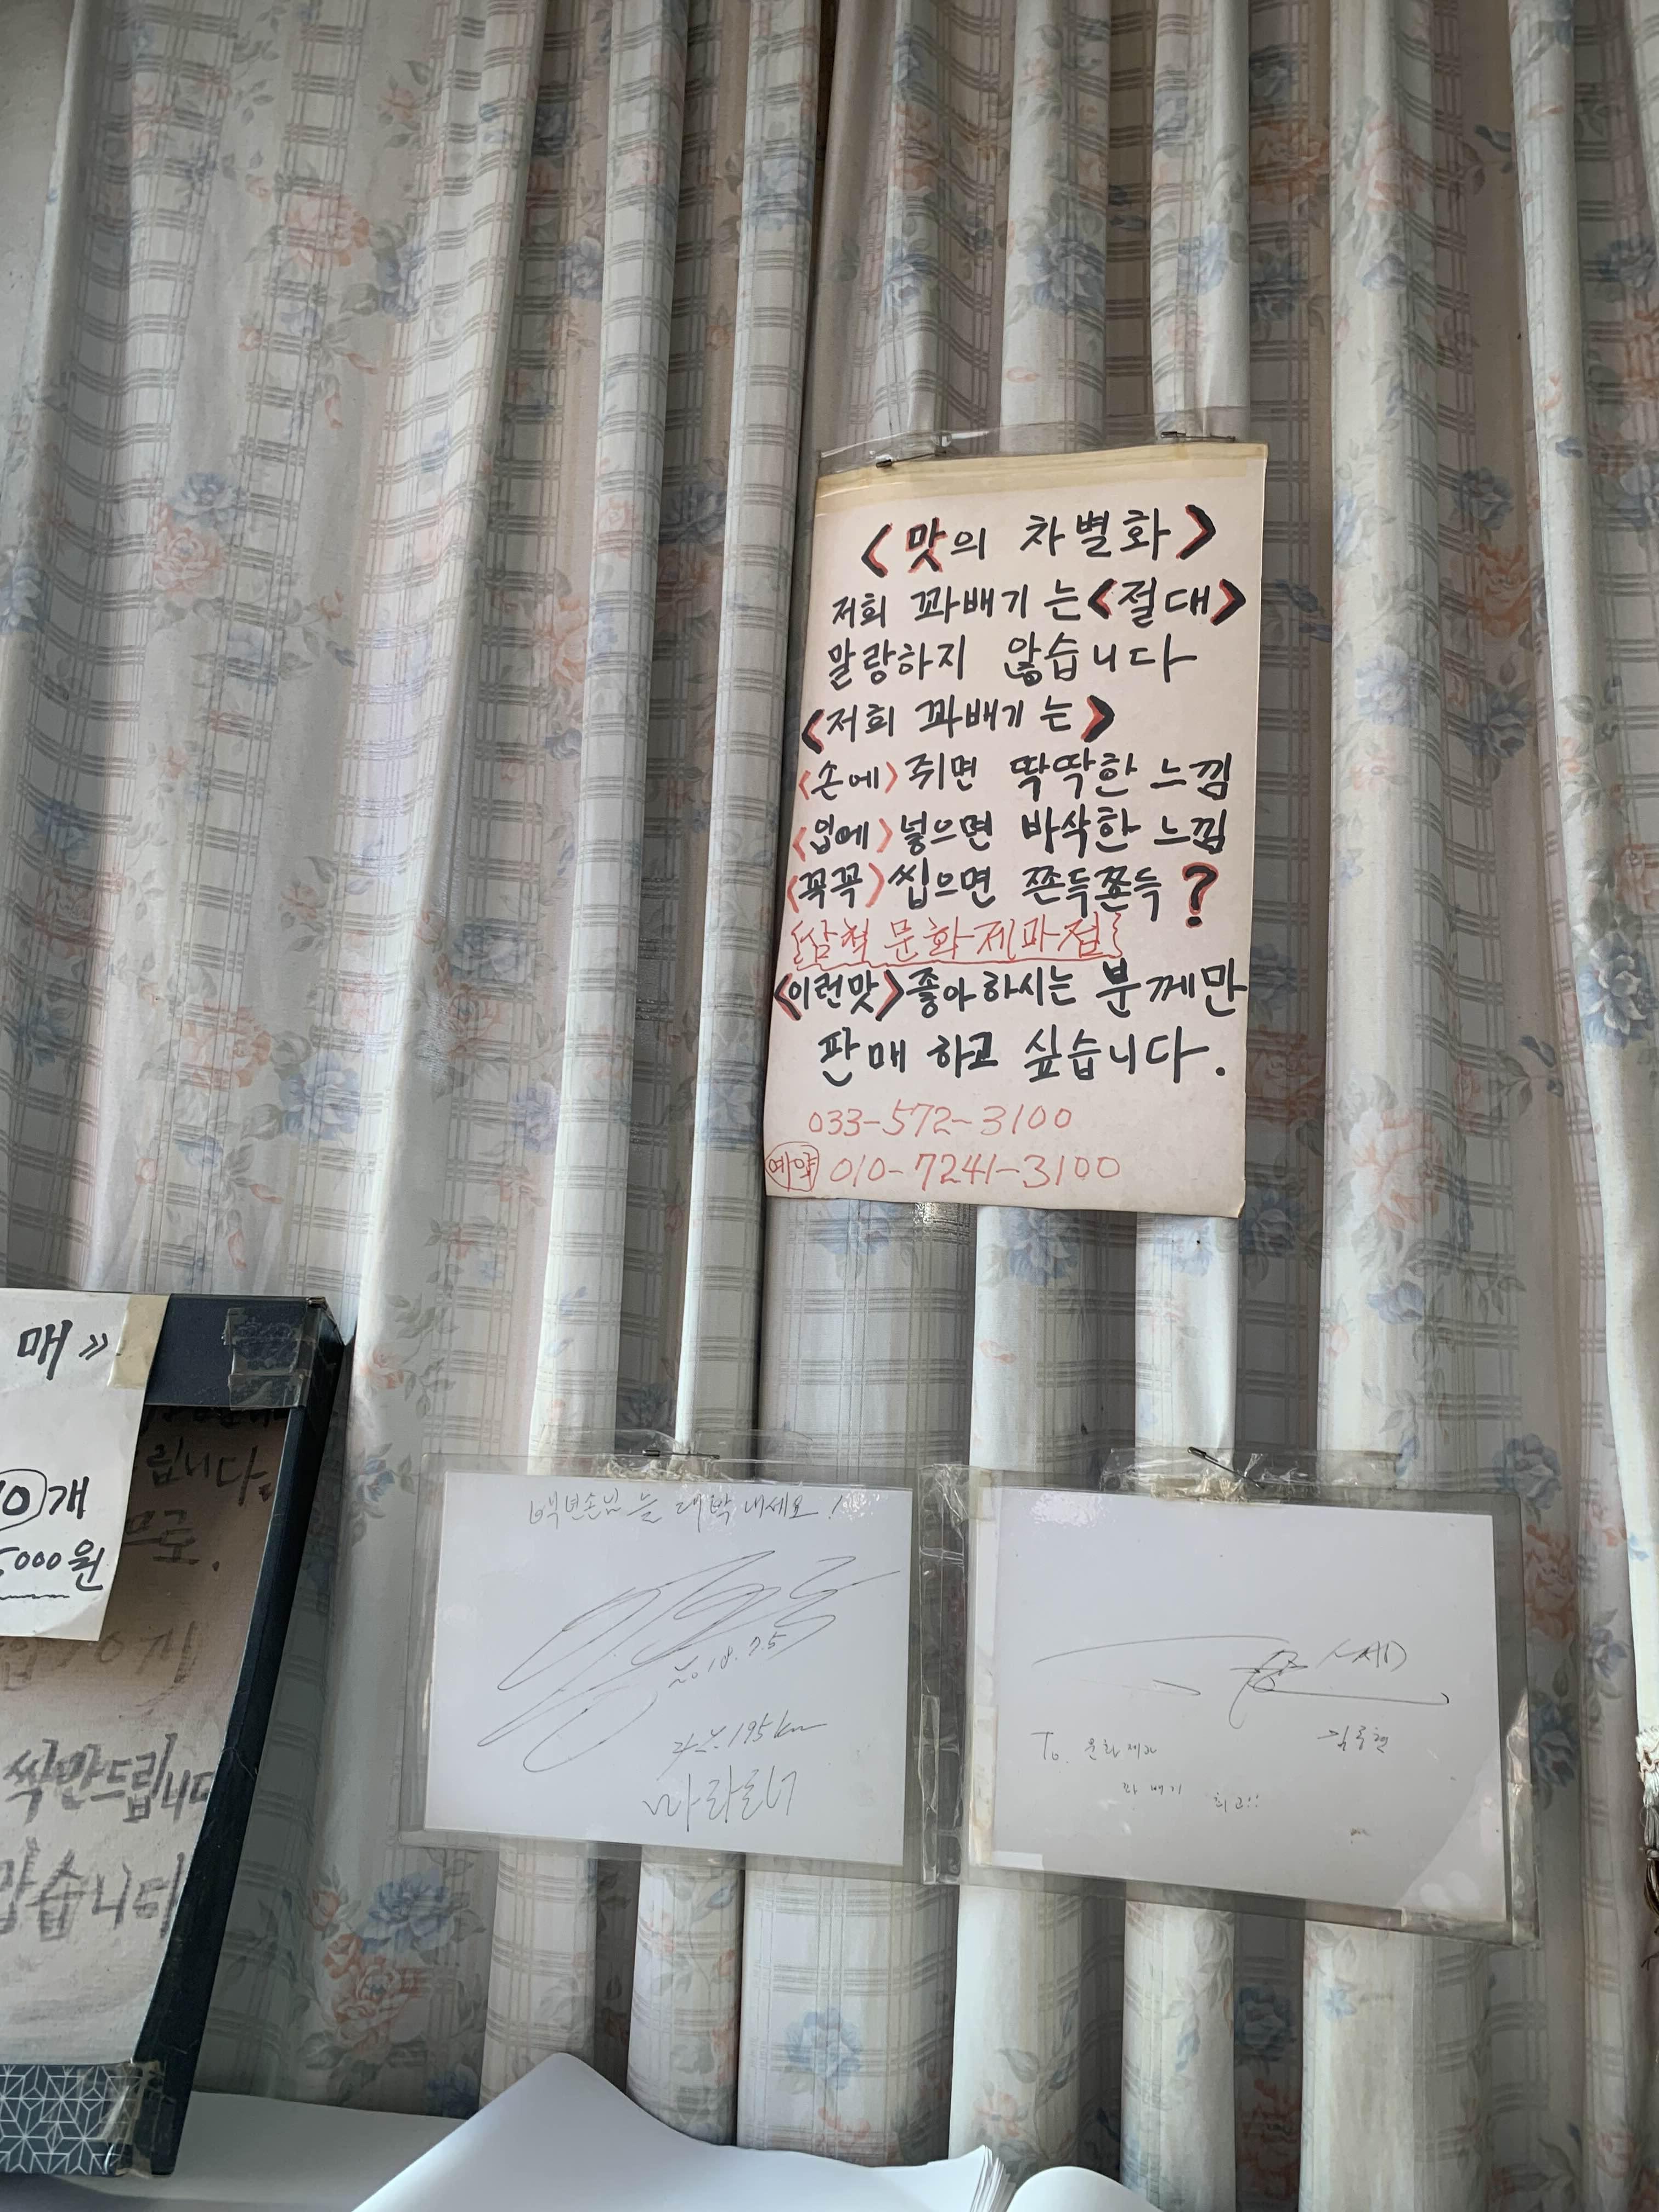 <맛의 차별화>
저희 꽈배기는<절대>
말랑하지 않습니다
<저희 꽈배기는>
<손에>쥐면 딱딱한 느낌
<입에>넣으면 바삭한 느낌
<꼭꼭>씹으면 쫀득쫀득?
{삼척 문화제과점}
<이런맛>좋아하시는 분께만
판매 하고 싶습니다.
033-572-3100
예약 010-7241-3100
매》
10개
5000원
립니다.
므로.
싹만드립니다
맙습니다
백년손님 늘 대박 내세요!
2018.7.5
195km
마라토너
김동현
To. 문화제과
꽈배기 최고!!